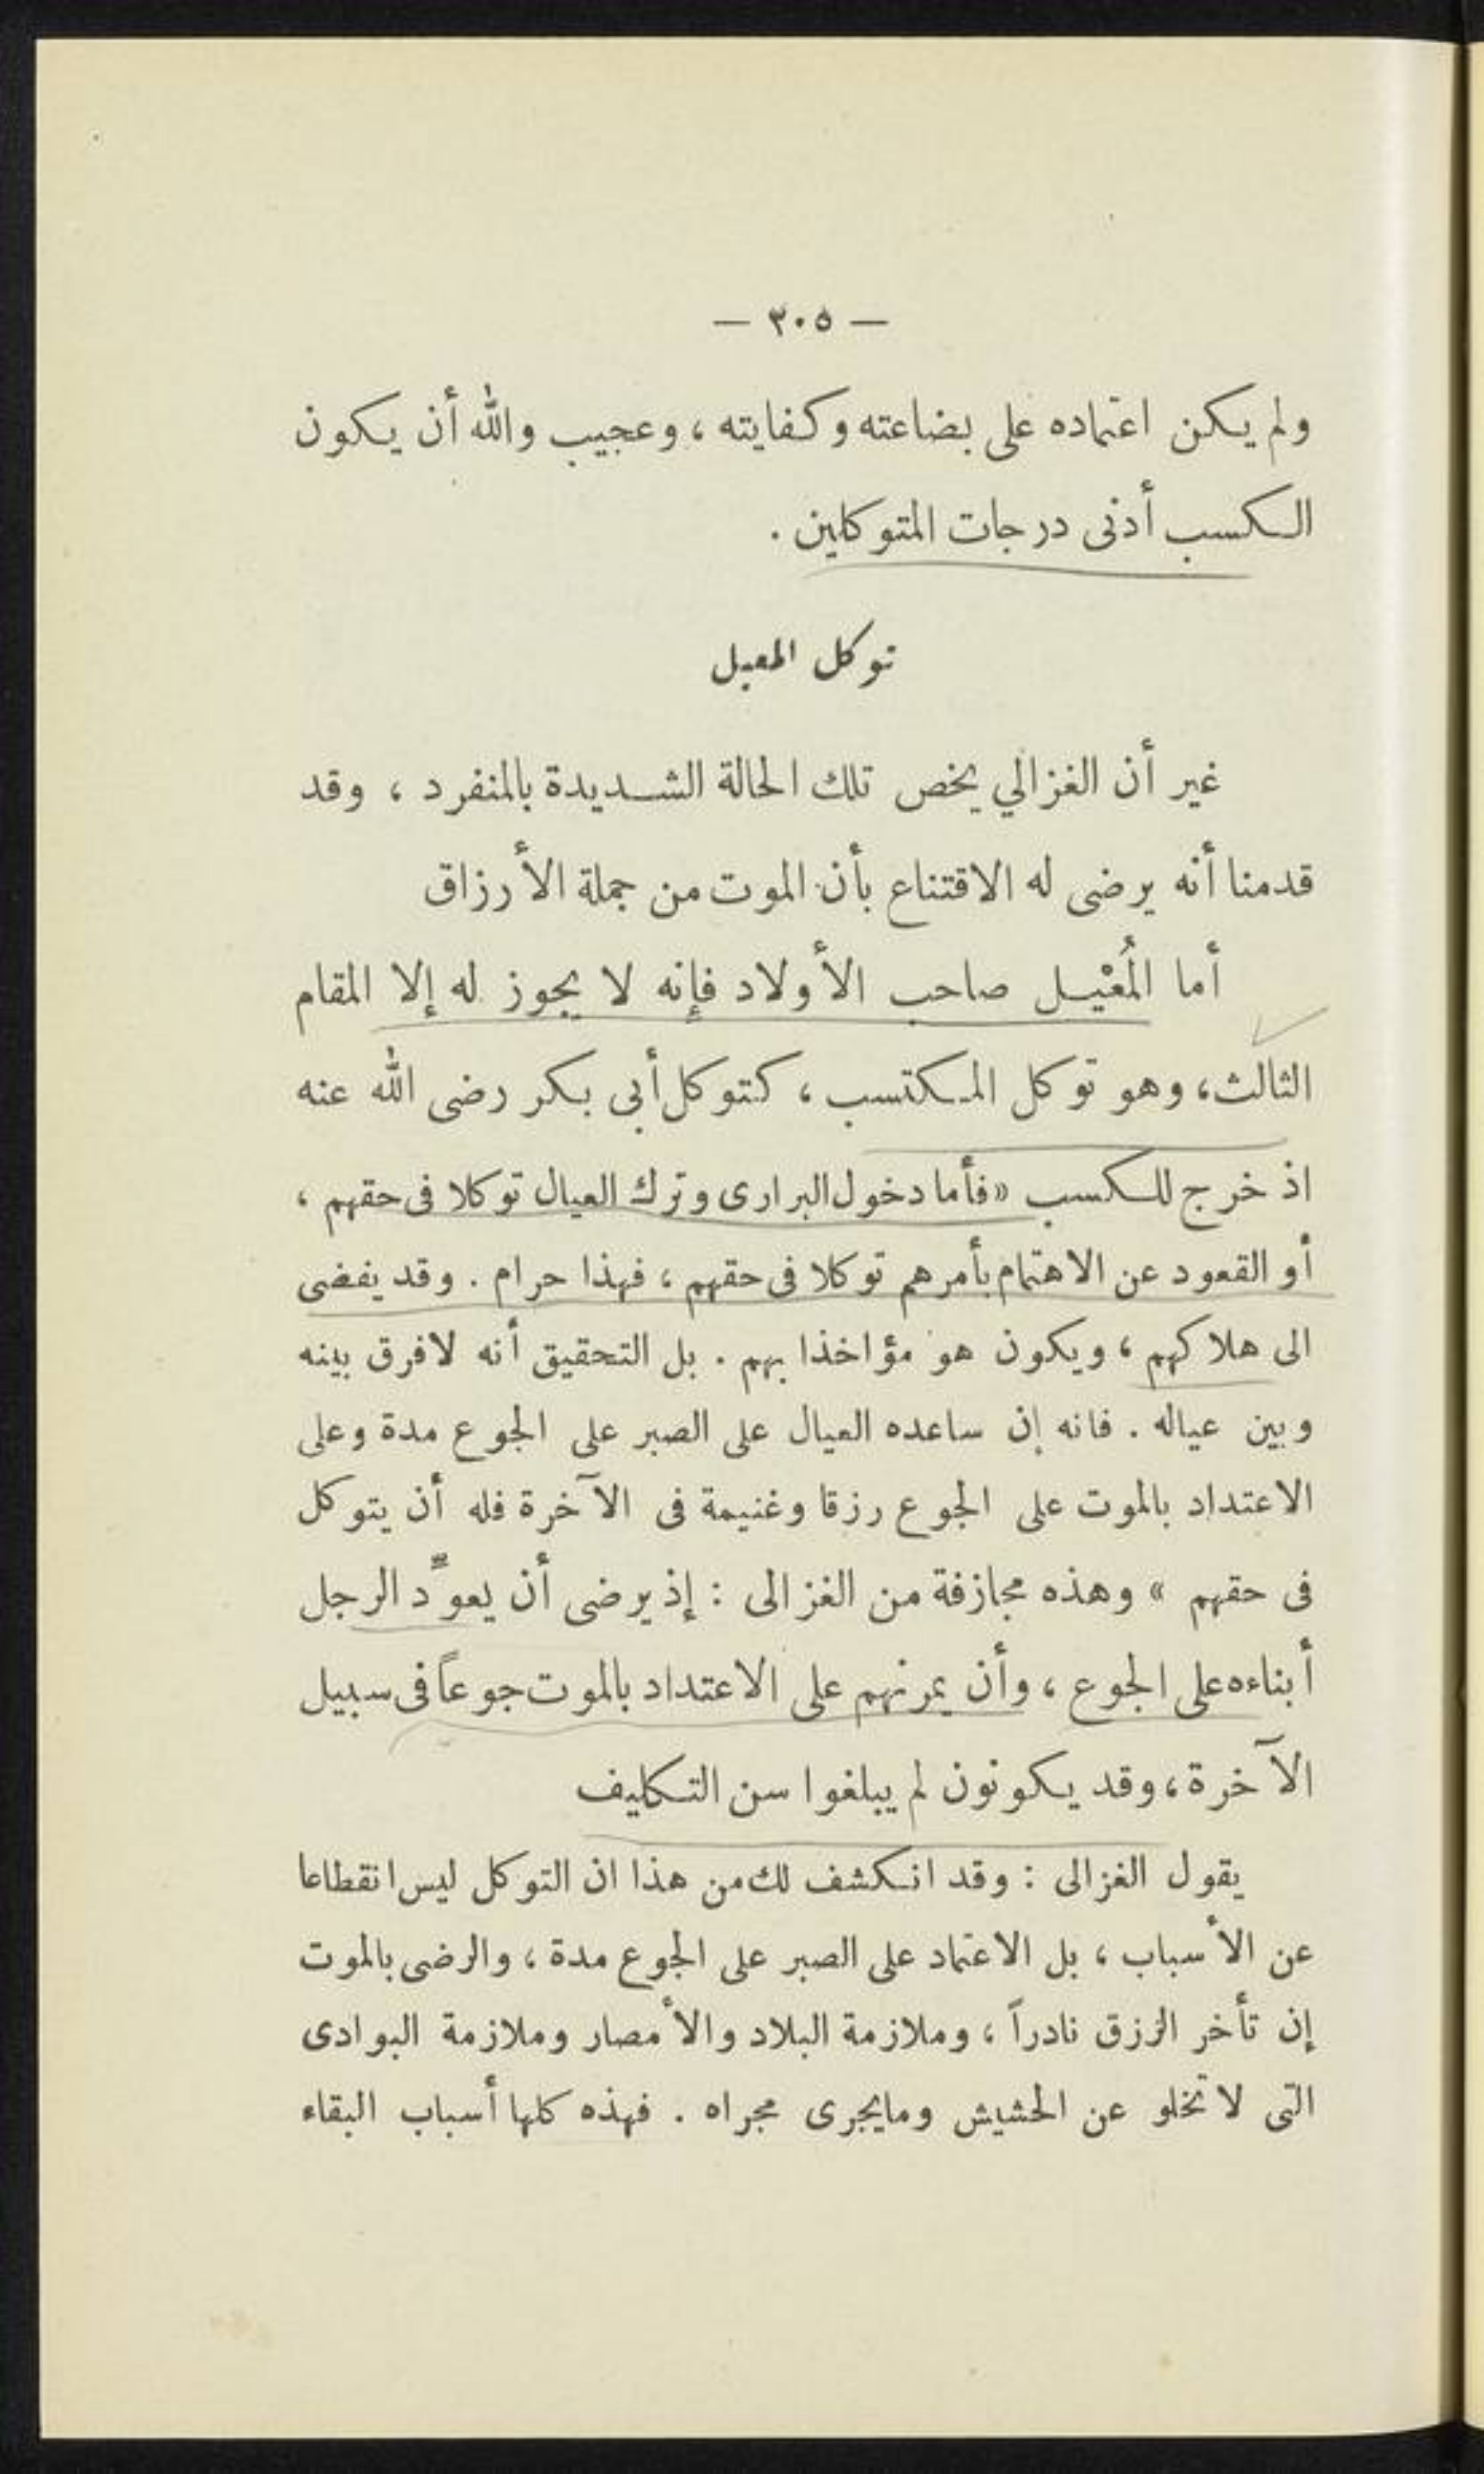 — ٣٠٥ —
ولم يكن اعتماده على بضاعته وكفايته ، وعجيب والله أن يكون
الكسب أدنى درجات المتوكلين .
توكل المعيل
غير أن الغزالي يخص تلك الحالة الشديدة بالمنفرد ، وقد
قدمنا أنه يرضى له الاقتناع بأن الموت من جملة الأرزاق
أما المُعْيل صاحب الأولاد فإنه لا يجوز له إلا المقام
الثالث، وهو توكل المكتسب ، كتوكل أبى بكر رضى الله عنه
اذ خرج للكسب «فأما دخول البرارى وترك العيال توكلا فى حقهم ،
أو القعود عن الاهتمام بأمرهم توكلا فى حقهم ، فهذا حرام . وقد يفضى
الى هلاكهم ، ويكون هو مؤاخذا بهم . بل التحقيق أنه لافرق بينه
وبين عياله . فانه إن ساعده العيال على الصبر على الجوع مدة وعلى
الاعتداد بالموت على الجوع رزقا وغنيمة فى الآخرة فله أن يتوكل
فى حقهم » وهذه مجازفة من الغزالى : إذ يرضى أن يعوِّد الرجل
أبناءه على الجوع ، وأن يمرنهم على الاعتداد بالموت جوعاً فى سبيل
الآخرة ، وقد يكونون لم يبلغوا سن التكليف
يقول الغزالى : وقد انكشف لك من هذا ان التوكل ليس انقطاعا
عن الأسباب ، بل الاعتماد على الصبر على الجوع مدة ، والرضى بالموت
إن تأخر الرزق نادراً ، وملازمة البلاد والأمصار وملازمة البوادى
التى لا تخلو عن الحشيش ومايجرى مجراه . فهذه كلها أسباب البقاء